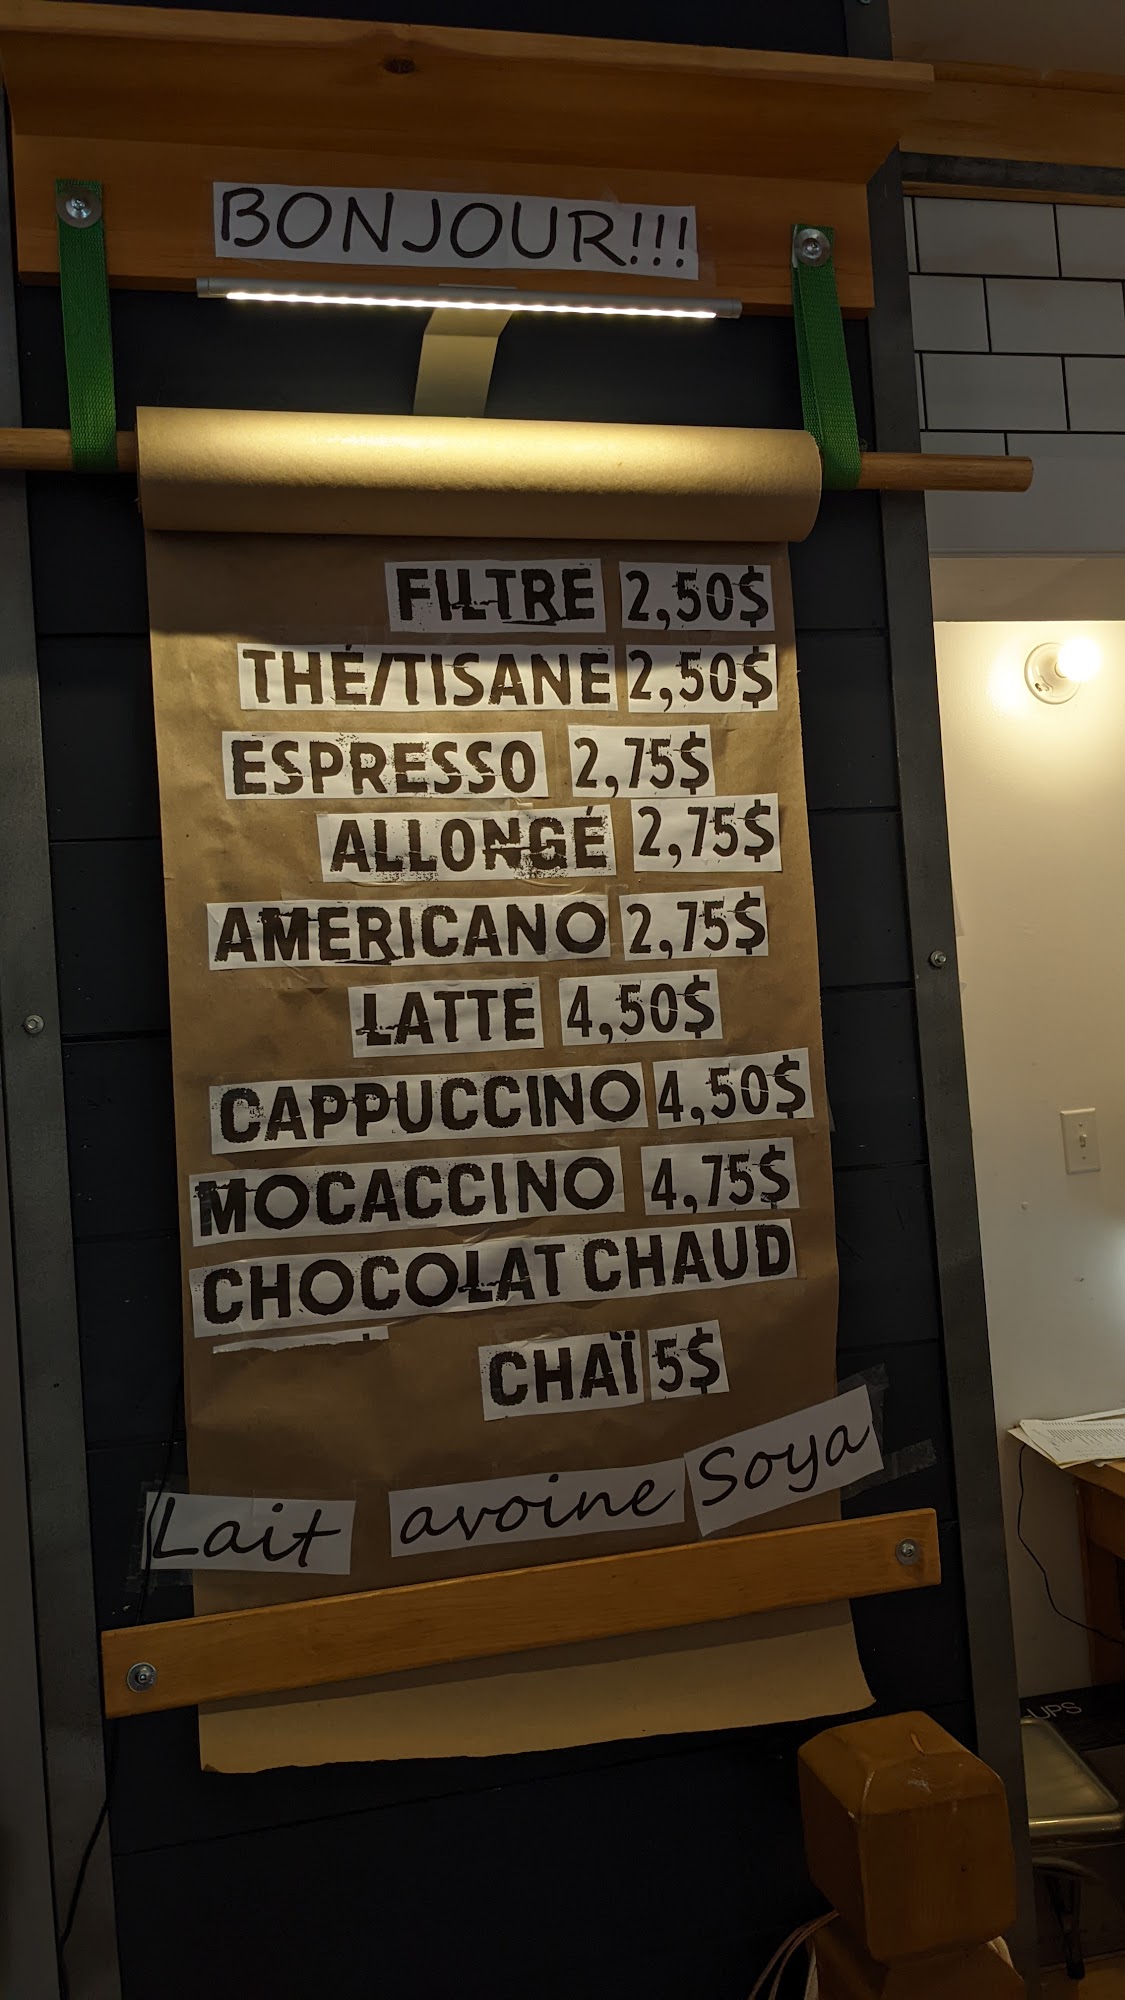 BONJOUR!!!
FILTRE 2,50$
THÉ/TISANE 2,50$
ESPRESSO 2,75$
ALLONGÉ 2,75$
AMERICANO 2,75$
LATTE 4,50$
CAPPUCCINO 4,50$
MOCACCINO 4,75$
CHOCOLAT CHAUD
CHAÏ 5$
Lait avoine Soya
-UPS